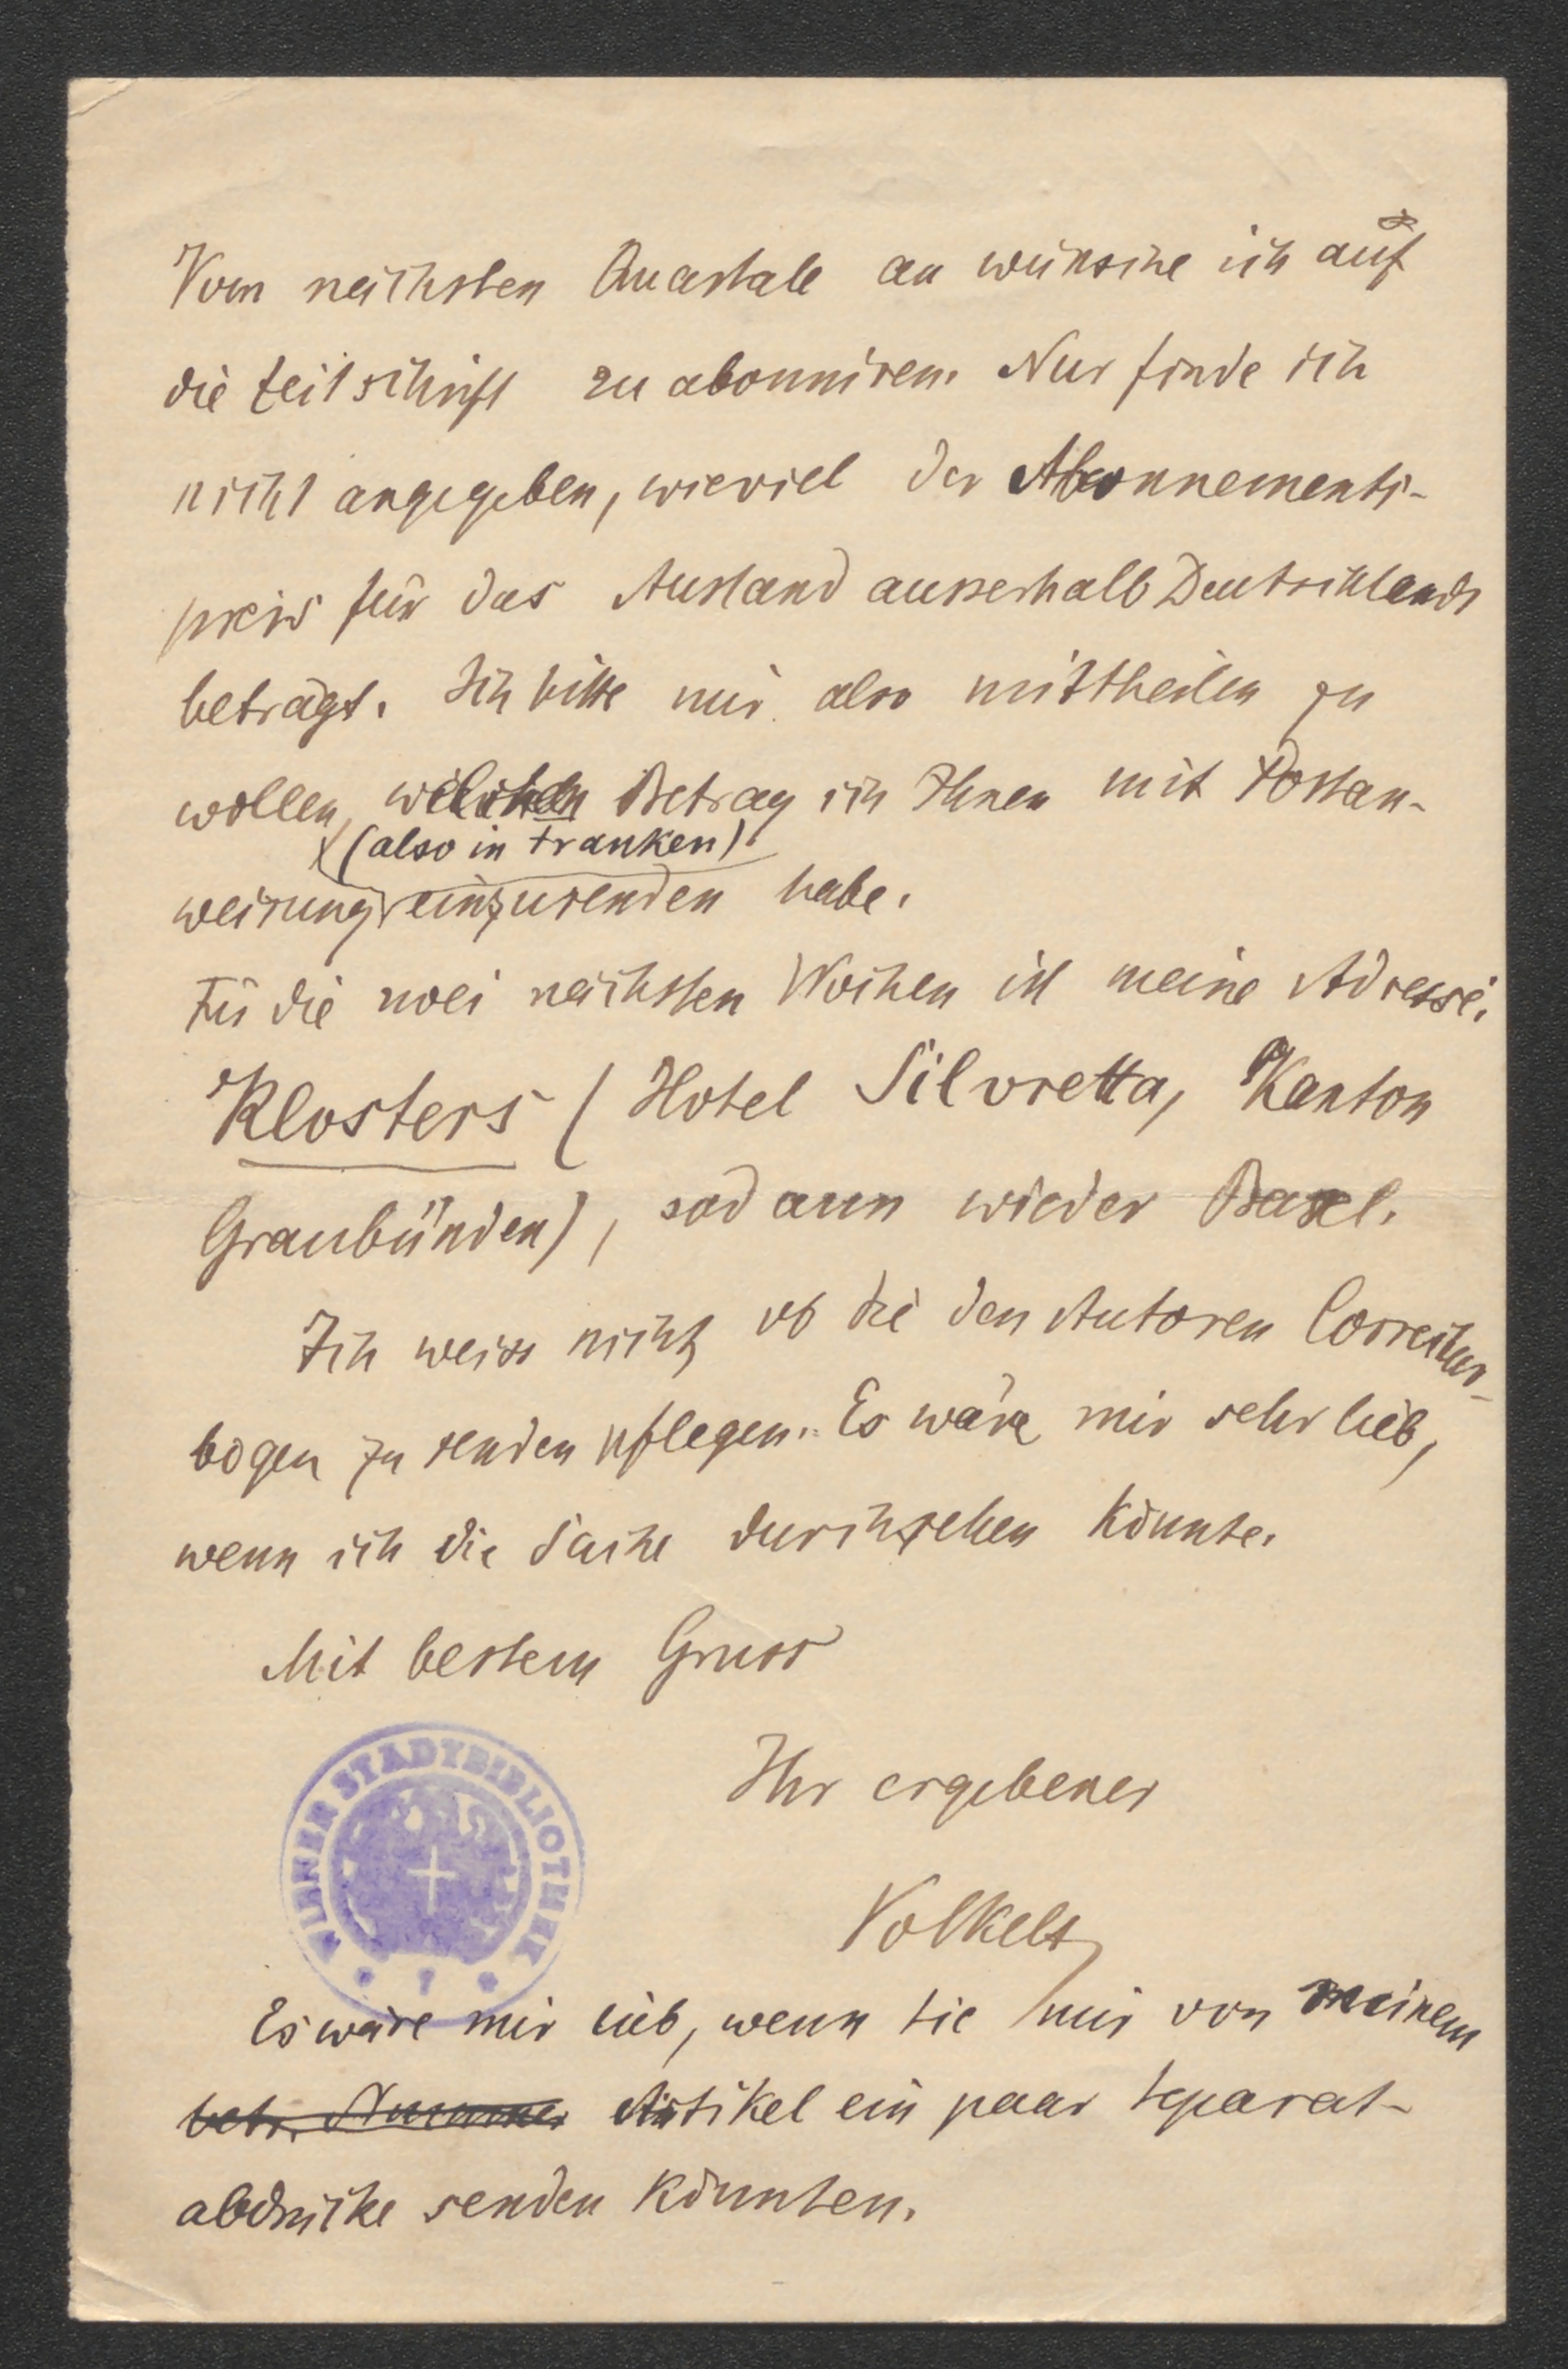 Vom nächsten Quartale an wünsche ich auf
die Zeitschrift zu abonniren. Nur finde ich
nicht angegeben, wieviel der Abonnements-
preis für das Ausland ausserhalb Deutschlands
beträgt. Ich bitte mir also mittheilen zu
wollen, welchen Betrag ich Ihnen mit Postan-
(also in Franken)
weisung einzusenden habe.
Für die zwei nächsten Wochen ist meine Adresse:
Klosters (Hotel Silvretta, Kanton
Graubünden), sodann wieder Basel.
Ich weiss nicht, ob Sie den Autoren Correctur-
bogen zu senden pflegen. Es wäre mir sehr lieb,
wenn ich die Sache durchsehen könnte.
Mit bestem Gruss
Ihr ergebener
Volkelt
WIENER STADTBIBLIOTHEK
Es wäre mir lieb, wenn Sie mir von meinem
betr. Artikel ein paar Separat-
abdrücke senden könnten.